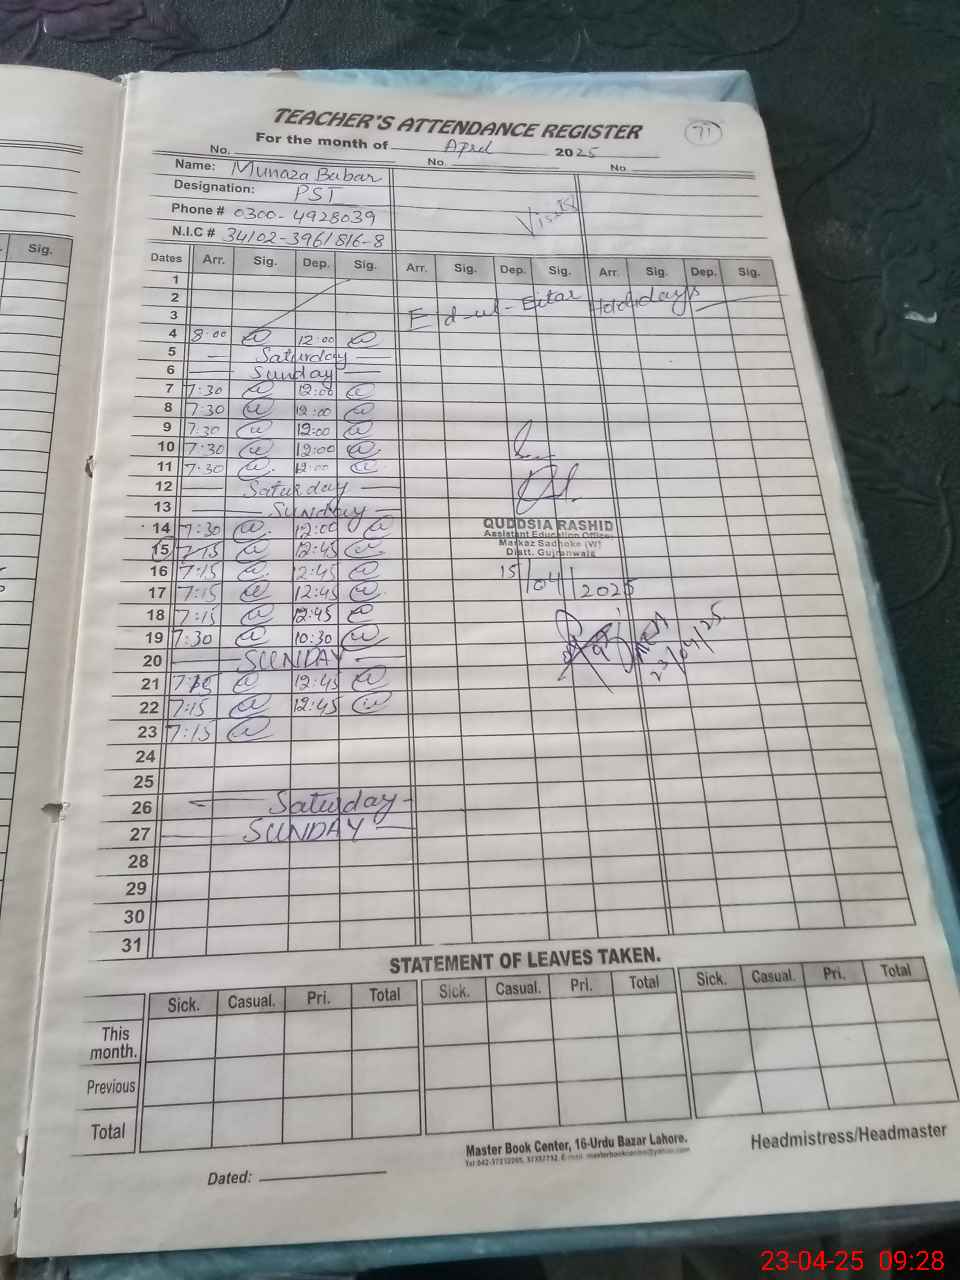 TEACHER'S ATTENDANCE REGISTER 71
For the month of April 2025
No. No. No.
Name: Munaza Babar
Designation: PST
Phone # 0300-4928039
N.I.C # 34102-3961816-8
Visits
Dates Arr. Sig. Dep. Sig. Arr. Sig. Dep. Sig. Arr. Sig. Dep. Sig.
1
2 Eid-ul-Fitar Holidays
3
4 8:00 12:00
5 Saturday
6 Sunday
7 7:30 12:00
8 7:30 12:00
9 7:30 12:00
10 7:30 12:00
11 7:30 12:00
12 Saturday
13 Sunday
14 7:30 12:00
15 7:15 12:45
16 7:15 12:45
17 7:15 12:45
18 7:15 12:45
19 7:30 10:30
20 SUNDAY
21 7:15 12:45
22 7:15 12:45
23 7:15
24
25
26 Saturday
27 SUNDAY
28
29
30
31
QUDDSIA RASHID
Assistant Education Officer
Markaz Sadhoke (W)
Distt. Gujranwala
15/04/2025
23/04/25
STATEMENT OF LEAVES TAKEN.
Sick. Casual. Pri. Total Sick. Casual. Pri. Total Sick. Casual. Pri. Total
This month.
Previous
Total
Master Book Center, 16-Urdu Bazar Lahore.
Headmistress/Headmaster
Dated:
Sig.
23-04-25 09:28